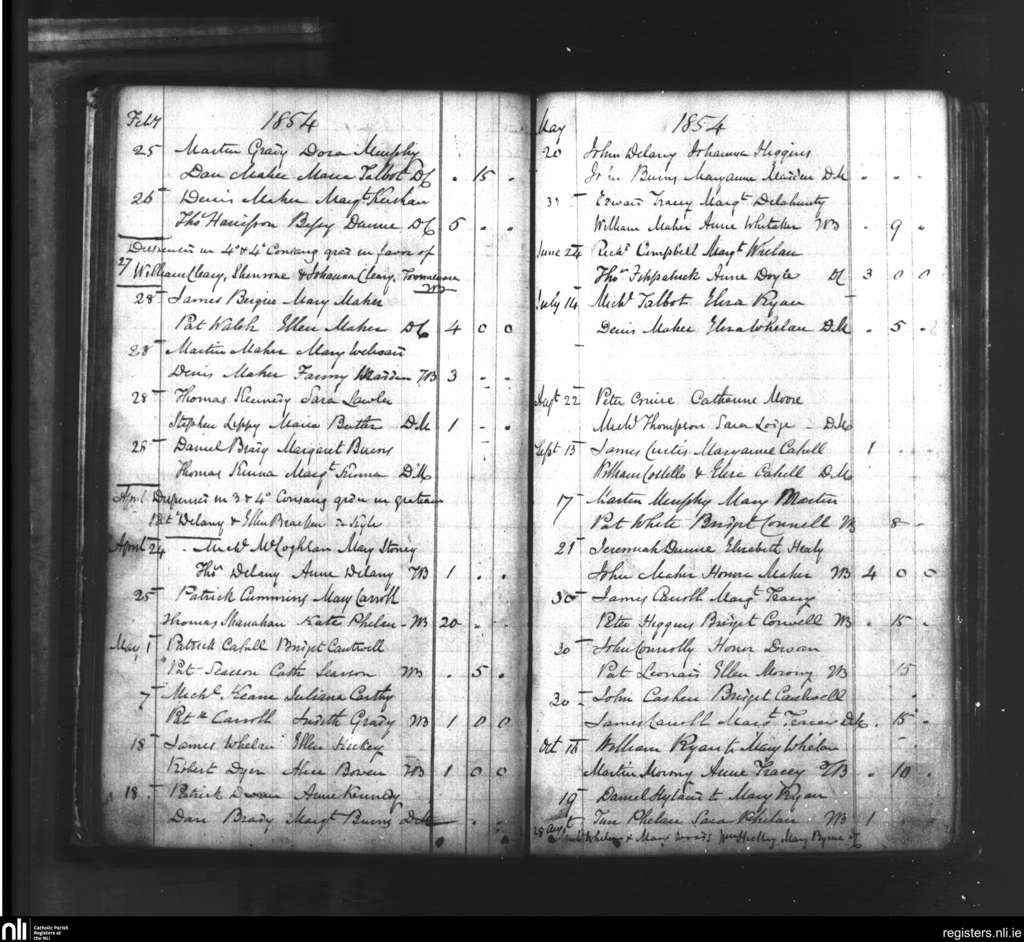 Feby 1854
25 Martin Grady Dora Murphy
Dan Maher Maria Talbot DC . 15 .
26 Denis Maher Margt
Thos Harrisson Bessy Dunne DC 6 . .
Dispensed in 4° & 4° Consang in favor of
27 William Cleary, Shinrone & Johanna Cleary,
WB
28 James Mary Maher
Pat Walsh Ellen Maher DC 4 0 0
28 Martin Maher Mary
Denis Maher Fanny Madden WB 3 - -
28 Thomas Kennedy Sara Lawlor
Stephen Leppy Maria Butler DM 1 - .
28 Daniel Brady Margaret Burns
Thomas Kenna Margt Kenna DM
April Dispensed in 3 & 4° Consang
Patk Delany & Ellen Bracken Kyle
April 24 Michl McLoghlan Mary Stoney
Thos Delany Anne Delany WB 1 . .
25 Patrick Cummins Mary Carroll
Thomas Shanahan Kate Phelan - WB 20 . .
May 1 Patrick Cahill Bridget Cantwell
Pat Scasson Cath Scasson WB . 5 .
7 Michl Keane Juliana Carthy
Patk Carroll Judith Grady WB 1 0 0
18 James Whelan Ellen Hickey
Robert Dyer Alice Bowen WB 1 0 0
18 Patrick Dwan Anne Kennedy
Dan Brady Margt Burns DM . .
May 1854
20 John Delany Johanna Higgins
John Burns Maryanne Madden DM . . .
Edward Tracey Margt Delahunty
William Maher Anne Whitaker WB . 9 .
June 24 Richd Campbell Margt Whelan
Thos Fitzpatrick Anne Doyle DC 3 0 0
July 14 Michl Talbot Eliza Ryan
Denis Maher Eliza Whelan DM . 5 .
Augt 22 Peter Cruise Catharine Moore
Michl Thompson Sara - DM
Sept 13 James Curtis Maryanne Cahill 1 . .
William Costello & Eliza Cahill DM
17 Martin Murphy Mary Martin
Pat White Bridget Connell WB 8 -
21 Jeremiah Dunne Elizabeth Healy
John Maher Honora Maher WB 4 0 0
30 James Carroll Margt Tracey
Peter Higgins Bridget Conwell WB . 15 .
30 John Connolly Honor Dwan
Pat Leonard Ellen Morony WB 15
30 John Cashen Bridget Cantwell
James Carroll Margt DM . 15 .
Oct 16 William Ryan to Mary Whelan
Martin Morony Anne Tracey WB . 10 .
19 Daniel Hyland to Mary Ryan
Tim Phelan Sara Phelan WB 1
28 Augt Whelan & Mary Mary Byrne
nli Catholic Parish Registers at the NLI
registers.nli.ie